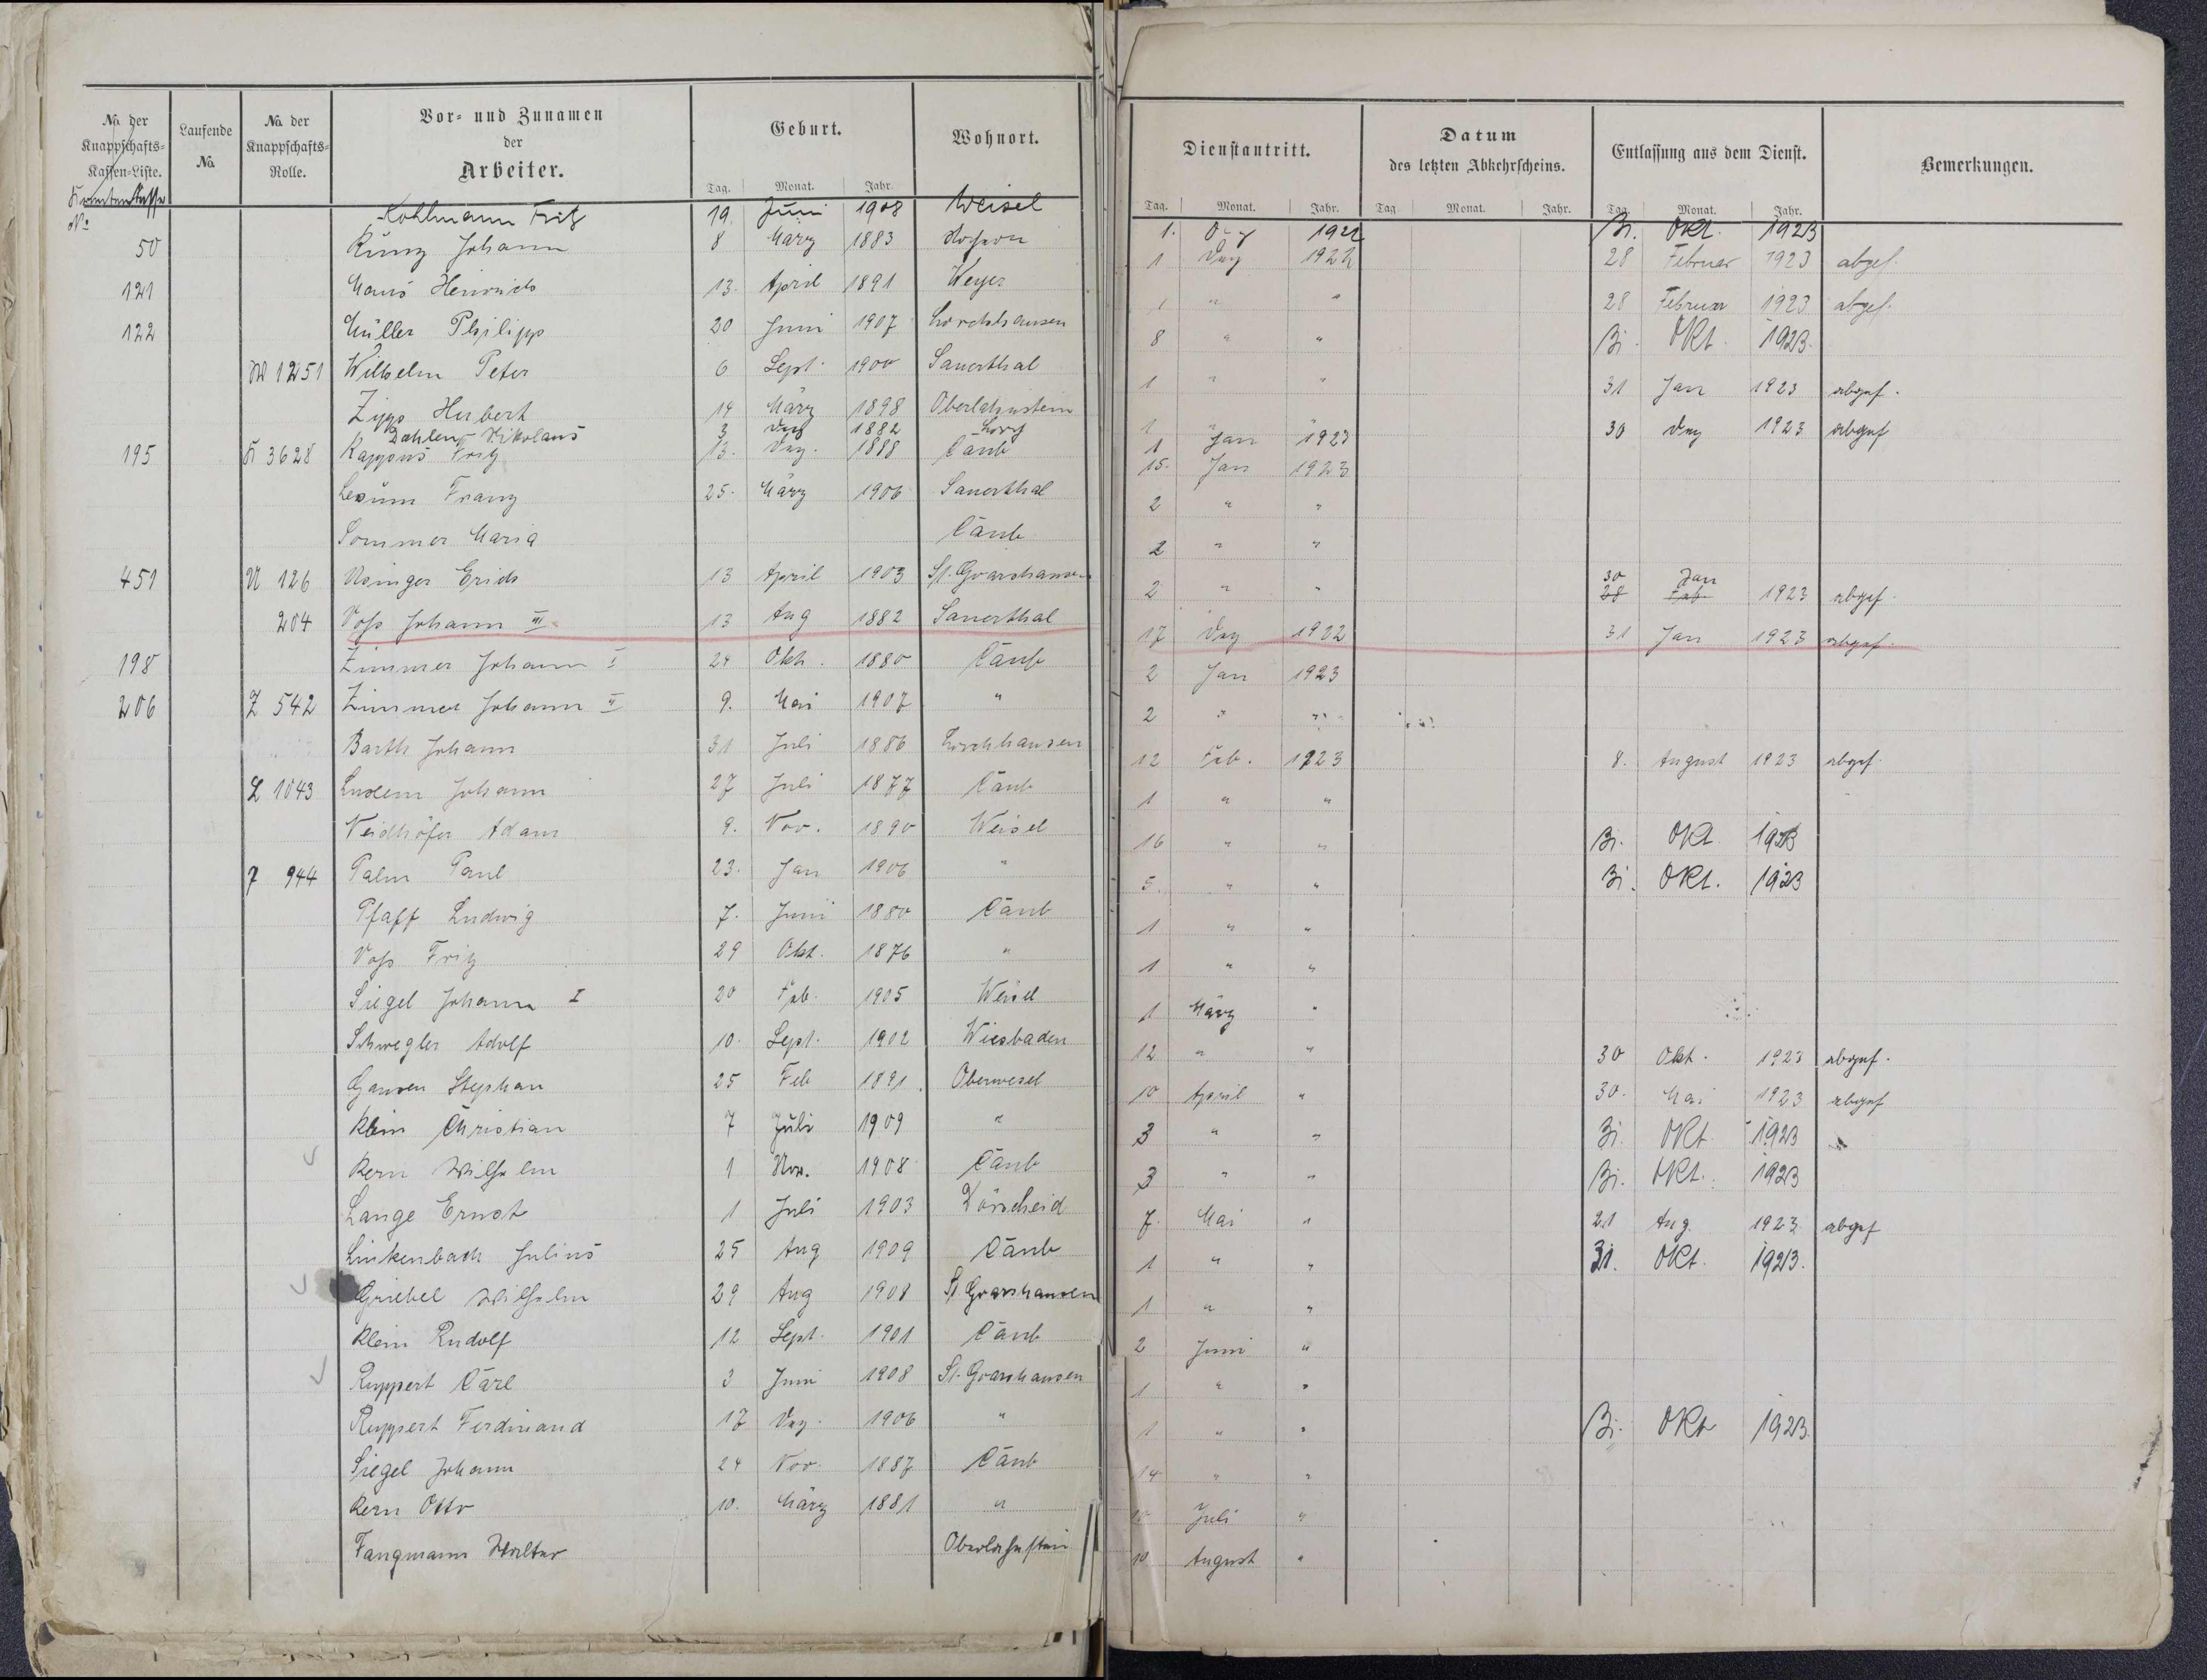 No. der Knappschafts-Kassen-Liste. Laufende No. No. der Knappschafts-Rolle. Vor- und Zunamen der Arbeiter. Geburt. Wohnort. Dienstantritt. Datum des letzten Abkehrscheins. Entlassung aus dem Dienst. Bemerkungen.
Tag. Monat. Jahr. Tag. Monat. Jahr. Tag. Monat. Jahr. Tag. Monat. Jahr.
Krankenkasse No
Kohlmann Fritz 19. Juni 1908 Weisel 1. 1922 31. Okt. 1923
50 Kunz Johann 8 März 1883 1 Dez 1922 28 Februar 1923 abgef.
121 Maus Heinrich 13. April 1891 Weyer 1 " " 28 Februar 1923 abgef.
122 Müller Philipp 20 Juni 1907 Lorchhausen 8 " " 31. Okt. 1923.
W 1251 Wilhelm Peter 6 Sept. 1900 Sauerthal 1 " " 31 Jan 1923 abgef.
Zipp Herbert 14 März 1898 Oberlahnstein 1 " " 30 Dez 1923 abgef
Dahlen Nikolaus 3 Dez 1882 Lorch 1 Jan 1923
195 K 3628 Kappus Fritz 13. Dez. 1888 Caub 15. Jan 1923
Lexüm Franz 25. März 1906 Sauerthal 2 " "
Sommer Maria Caub 2 " "
451 U 126 Usinger Erich 13 April 1903 St. Goarshausen 2 " " 30 Jan 28 Feb. 1923 abgef.
204 Voss Johann III 13 Aug 1882 Sauerthal 17 Dez 1922 31 Jan 1923 abgef.
198 Zimmer Johann I 24 Okt. 1880 Caub 2 Jan 1923
206 Z 542 Zimmer Johann II 9. Mai 1907 " 2 " "
Barth Johann 31 Juli 1886 Lorchhausen 12 Feb. 1923 8. August 1923 abgef.
L 1043 Luxem Johann 27 Juli 1877 Caub 1 " "
Neidhöfer Adam 9. Nov. 1890 Weisel 16 " " 31. Okt. 1923
P 944 Palm Paul 23. Jan 1906 " 5. " " 31. Okt. 1923
Pfaff Ludwig 7. Juni 1880 Caub 1 " "
Voss Fritz 29 Okt. 1876 " 1 " "
Siegel Johann I 20 Feb. 1905 Weisel 1 März "
Schwegler Adolf 10. Sept. 1902 Wiesbaden 12 " " 30 Okt. 1923 abgef.
Gansen Stephan 25 Feb 1891. Oberwesel 10 April " 30. Mai 1923 abgef
Klein Christian 7 Juli 1909 " 3 " " 31. Okt. 1923
Kern Wilhelm 1 Nov. 1908 Caub 3 " " 31. Okt. 1923
Lange Ernst 1 Juli 1903 Dörscheid 7. Mai " 21 Aug. 1923 abgef
Linkenbach Julius 25 Aug 1909 Caub 1 " " 31. Okt. 1923.
Griebel Wilhelm 29 Aug 1908 St. Goarshausen 1 " "
Klein Rudolf 12 Sept. 1901 Caub 2 Juni "
Ruppert Carl 3 Juni 1908 St. Goarshausen 1 " "
Ruppert Ferdinand 17 Dez. 1906 " 1 " " 31. Okt 1923.
Siegel Johann 24 Nov. 1887 Caub 14 " "
Kern Otto 10. März 1881 " 10 Juli "
Fangmann Walter Oberlahnstein 10 August "